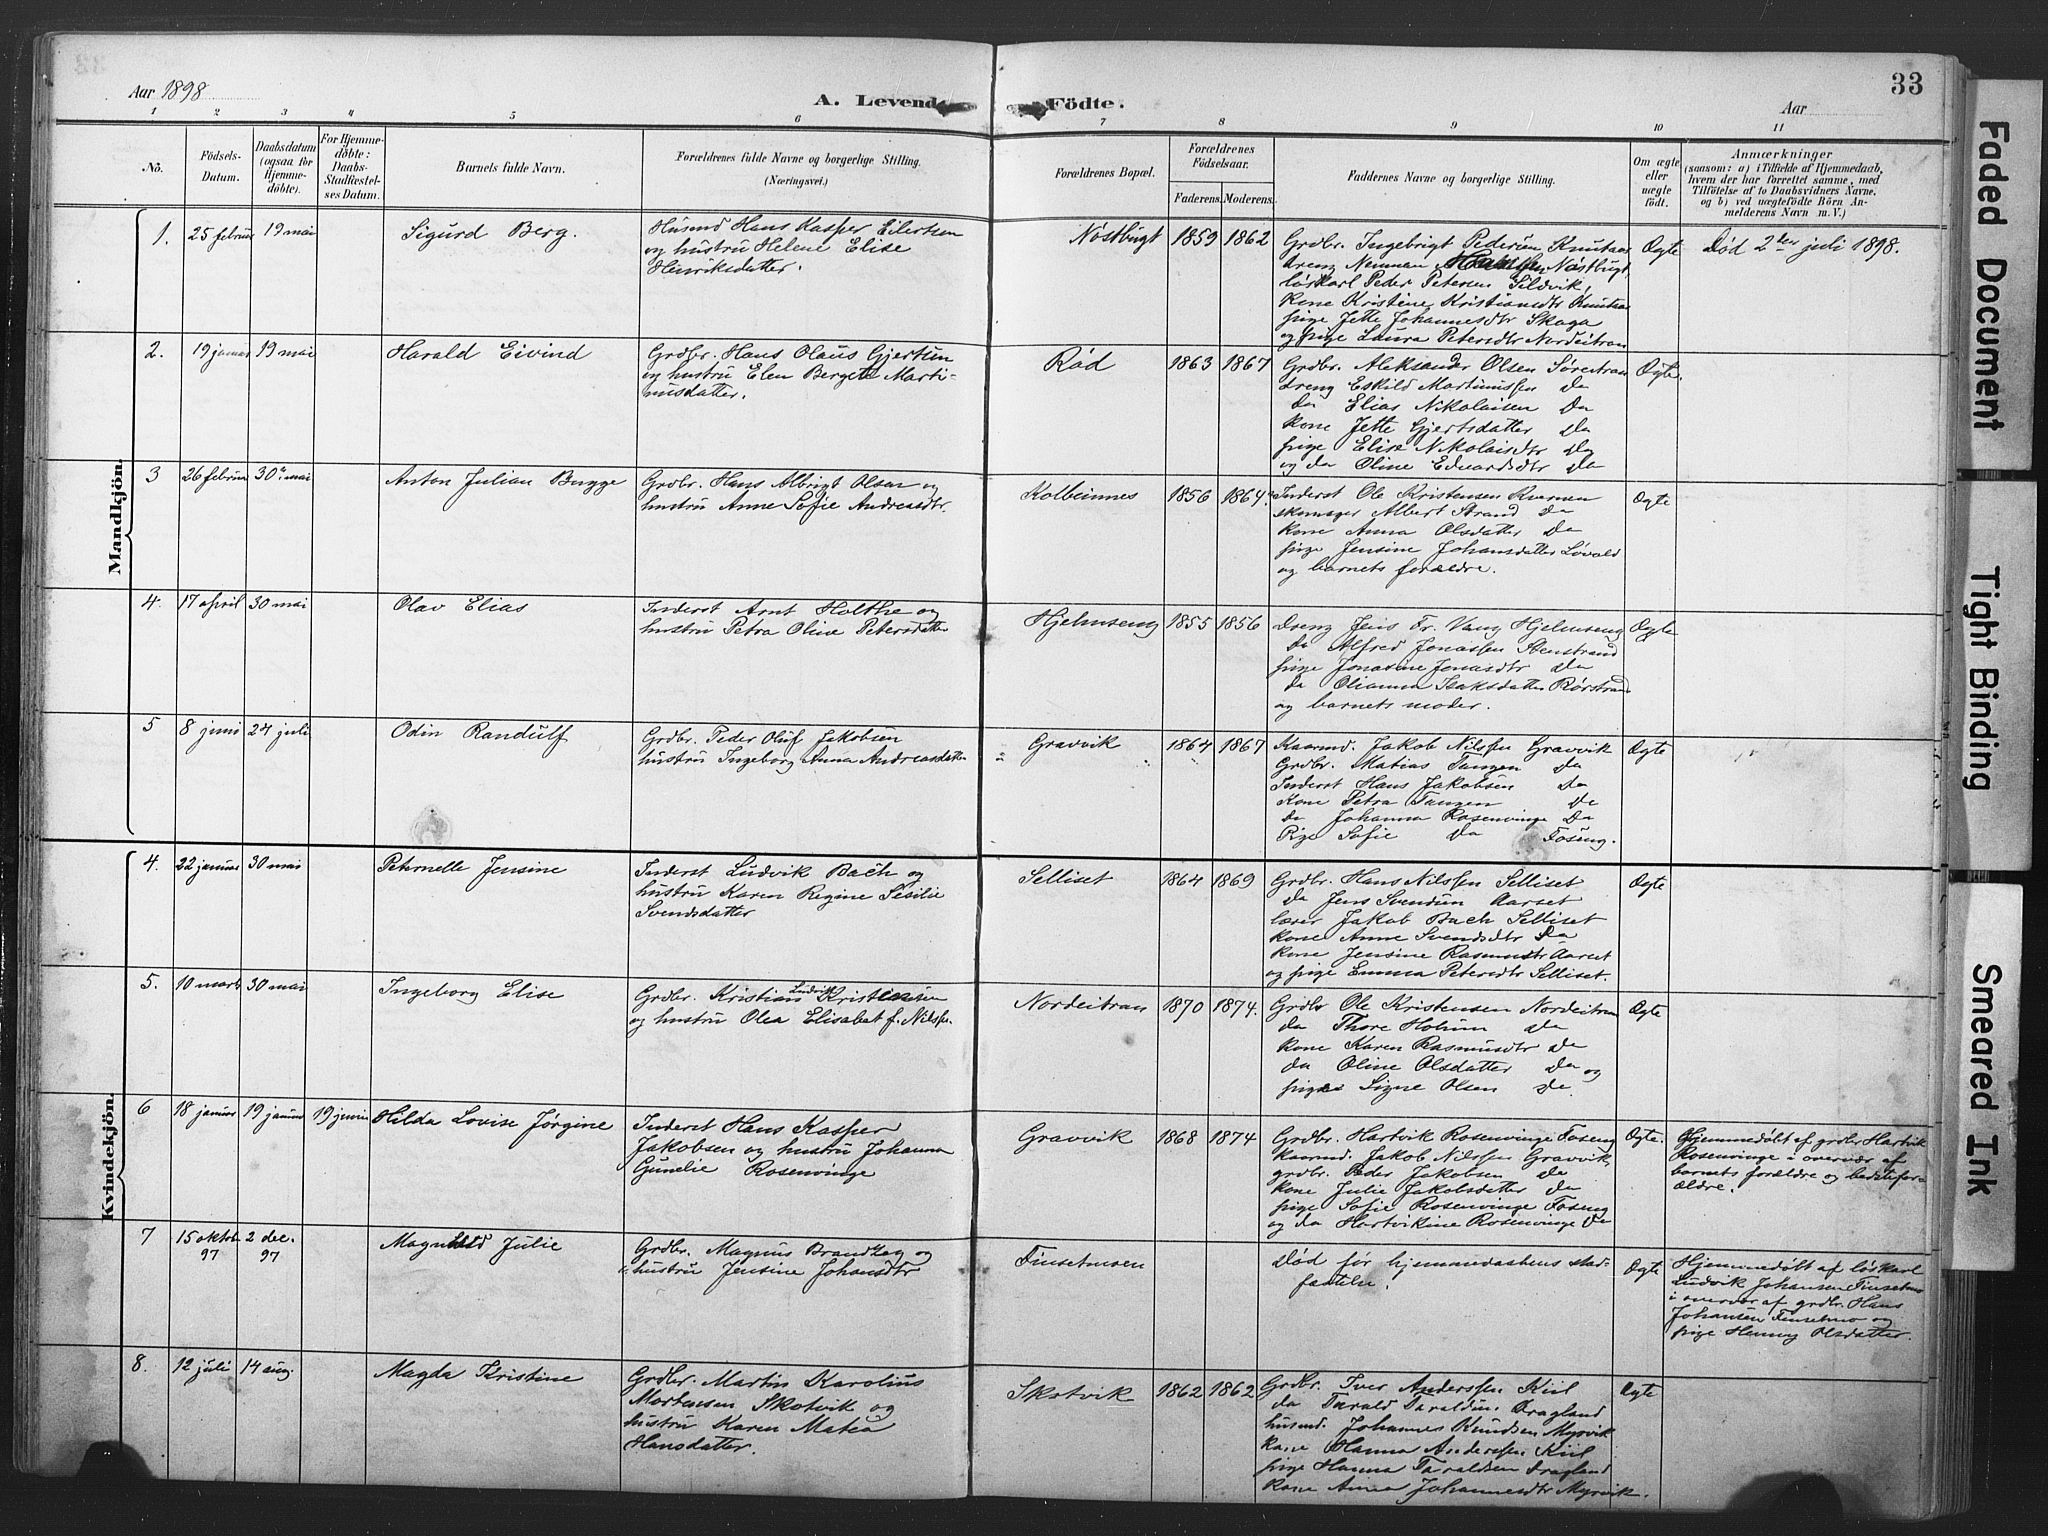 33
Aar 1898
A. Levende Födte.
Aar
1 2 3 4 5 6 7 8 9 10 11
No.
Födsels-Datum.
Daabsdatum (ogsaa for Hjemmedöbte).
For Hjemmedöbte: Daabs-Stadfæstelses Datum.
Barnets fulde Navn.
Forældrenes fulde Navne og borgerlige Stilling.
(Næringsvei.)
Forældrenes Bopæl.
Forældrenes Födselsaar.
Faderens. Moderens.
Faddernes Navne og borgerlige Stilling.
Om ægte eller uægte födt.
Anmærkninger
(saasom: a) i Tilfælde af Hjemmedaab,
hvem der har forrettet samme, med
Tilföielse af to Daabsvidners Navne,
og b) ved uægtefödte Börn An-
melderens Navn m. V.)
Mandkjön.
1. 25 februar 19 mai
Sigurd Berg.
Husmd Hans Kasper Eilertsen
og hustru Helene Elise
Henriksdatter.
Nøstbugt 1859 1862
Grdbr. Ingebrigt Pedersen
dreng Neuman Hansen Nøstbugt,
løskarl Peder Petersen Sildvik,
kone Kristine Kristiansdtr
pige Jette Johannesdtr Skaga
og pige Laura Petersdtr Nordeitran
Ægte
Død 2den juli 1898.
2. 19 januar 19 mai
Harald Eivind
Grdbr. Hans Olaus Gjertsen
og hustru Elen Bergete Marti-
nusdatter.
Rød 1863 1867
Grdbr. Aleksander Olsen Søreitran
dreng Eskild Martinussen do
do Elias Nikolaisen do
kone Jette Gjertsdatter do
pige Elise Nikolaisdtr do
og do Oline Edvardsdtr do
Ægte.
3 26 februar 30 mai
Anton Julian Bugge
Grdbr. Hans Albrigt Olsen og
hustru Anne Sofie Andreasdtr.
Kolbeinnes 1856 1864
Inderst Ole Kristensen Kvernen
skomager Albert Strand do
kone Anna Olsdatter do
pige Jensine Johansdatter Løvold
og barnets forældre.
Ægte
4. 17 april 30 mai
Olav Elias
Inderst Arnt Holthe og
hustru Petra Oline Petersdatter
Hjelmseng 1855 1856
Dreng Jens Fr. Vang Hjelmseng
do Alfred Jonassen Stenstrand
pige Jonasine Jonasdtr do
do Olianna Isaksdatter Rørstrand
og barnets moder.
Ægte
5 8 juni 24 juli
Odin Randulf
Grdbr. Peder Oluf Jakobsen
hustru Ingeborg Anna Andreasdatter
Gravvik 1864 1867
Kaarmd. Jakob Nilssen Gravvik
Grdbr. Matias Tangen do
Inderst Hans Jakobsen do
Kone Petra Tangen do
do Johanna Rosenvinge do
Pige Sofie do Føseng.
Ægte
Kvindekjön.
4. 22 januar 30 mai
Peternelle Jensine
Inderst Ludvik Bach og
hustru Karen Regine Sesilie
Svendsdatter
Selliset 1864 1869
Grdbr. Hans Nilssen Selliset
do Jens Svendsen Aarset
lærer Jakob Bach Selliset
kone Anne Svendsdtr do
kone Jensine Rasmusdtr Aarset
og pige Emma Petersdtr Selliset.
Ægte
5. 10 marts 30 mai
Ingeborg Elise
Grdbr. Kristian Ludvik Kristensen
og hustru Olea Elisabet f. Nilssen.
Nordeitran 1870 1874.
Grdbr Ole Kristensen Nordeitran
do Thore Holum do
kone Karen Rasmusdtr do
do Oline Olsdatter do og
pige Signe Olsen do.
Ægte
6 18 januar 19 januar 19 juni
Hilda Lovise Jørgine
Inderst Hans Kasper
Jakobsen og hustru Johanna
Gunelie Rosenvinge
Gravvik 1868 1874
Grdbr. Hartvik Rosenvinge Føseng
kaarmd. Jakob Nilssen Gravvik,
grdbr. Peder Jakobsen do
kone Julie Jakobsdatter do
pige Sofie Rosenvinge Føseng
og do Hartvikine Rosenvinge do
Ægte.
Hjemmedøbt af grdbr Hartvik
Rosenvinge i overvær af
barnets forældre og bedstefor-
ældre.
7 15 oktbr 97 2 dec. 97
Magnhild Julie
Grdbr. Magnus Brandtzæg og
hustru Jensine Johansdtr
Finsetmoen
Død før hjemmedaabens stad-
fæstelse.
Ægte
Hjemmedøbt af løskarl
Ludvik Johansen Finsetmo
i overvær af grdbr. Hans
Johansen Finsetmo og
pige Henny Olsdatter.
8. 12 juli 14 aug.
Magda Kristine
Grdbr. Martin Karolius
Mortensen Skotvik og
hustru Karen Matea
Hansdatter.
Skotvik 1862 1862
Grdbr. Iver Anderssen Kiil
do Tarald Taraldsen Dragland
husmd. Johannes Knudsen Myrvik
kone Hanna Anderssen Kiil
pige Hanna Taraldsen Dragland
kone Anna Johannesdtr Myrvik.
Ægte
Faded Document
Tight Binding
Smeared Ink